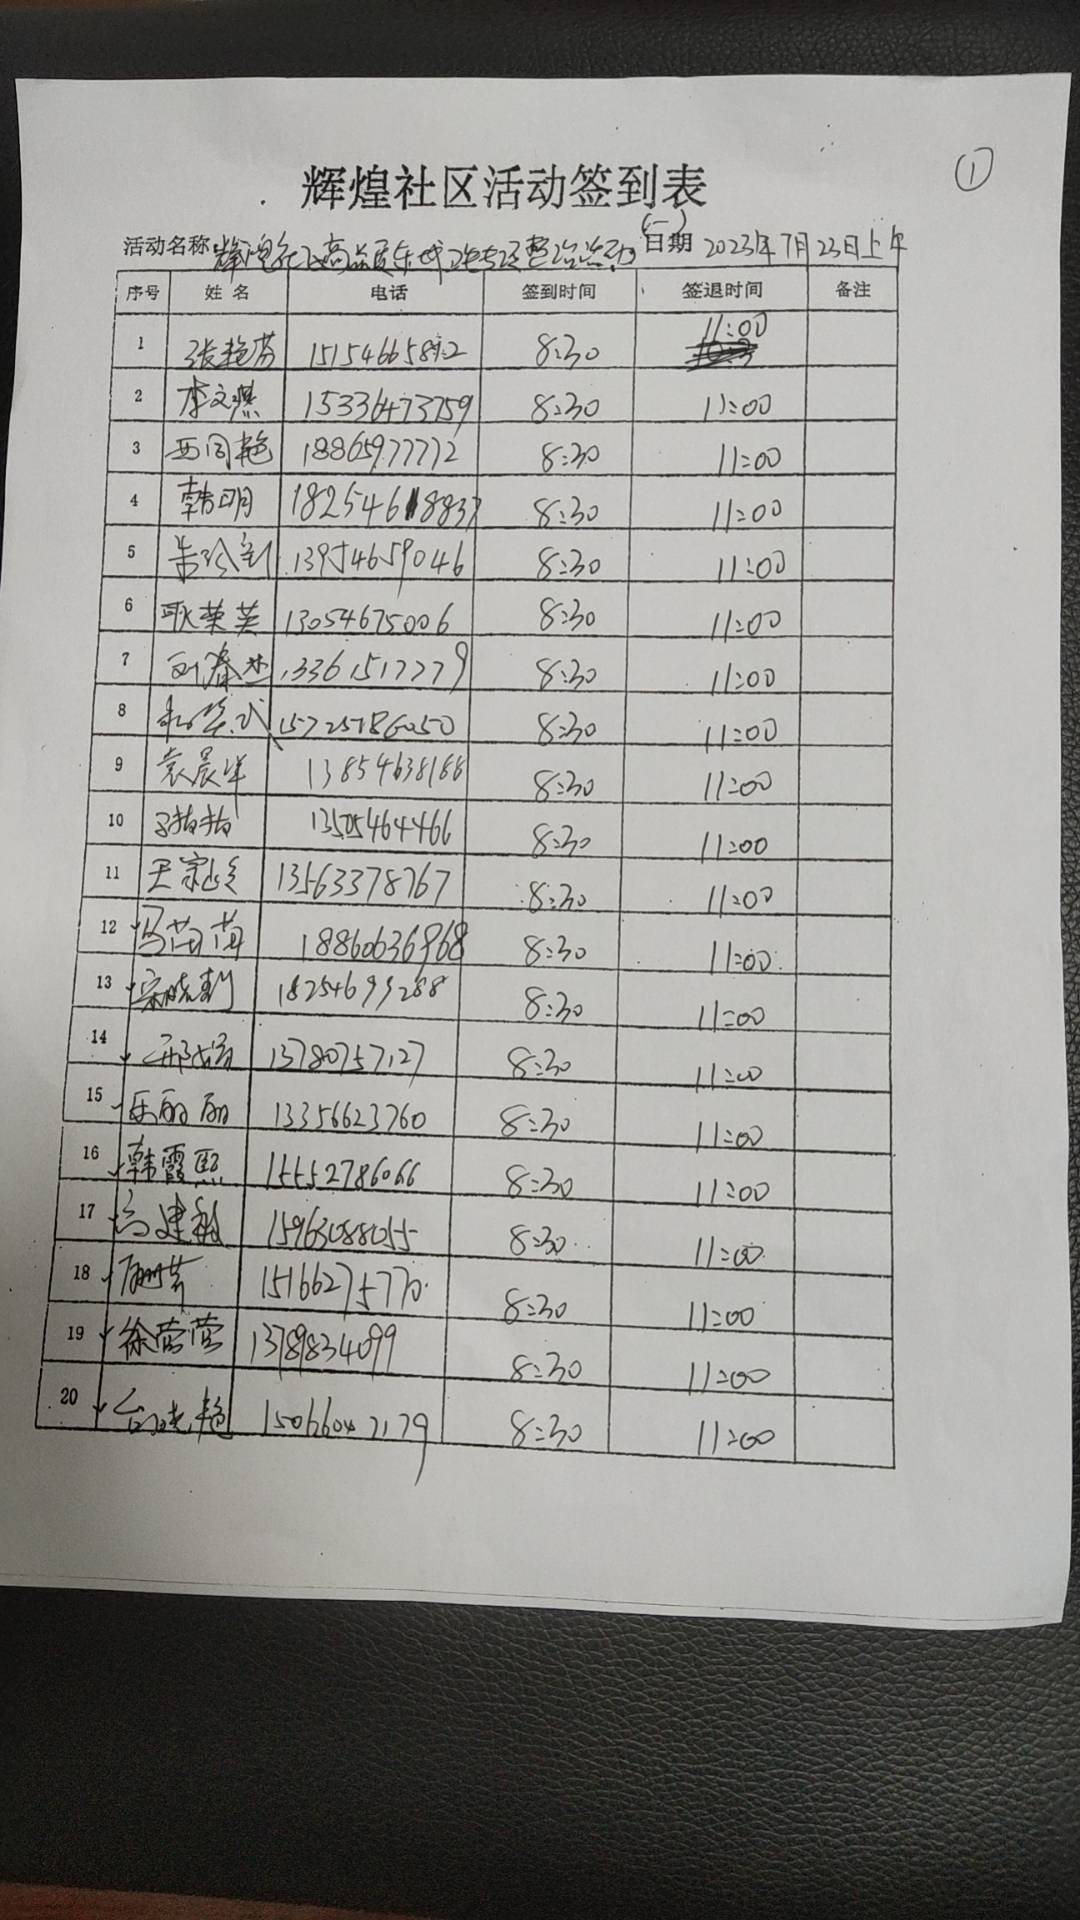 ①
辉煌社区活动签到表
(一)
活动名称 辉煌社区高品质东城 整治活动 日期 2023年7月23日上午
序号 姓名 电话 签到时间 签退时间 备注
1 张艳芬 8:30 11:00
2 李文燕 15336473759 8:30 11:00
3 西同艳 18865977772 8:30 11:00
4 韩明 8:30 11:00
5 13954659046 8:30 11:00
6 耿荣英 13054675006 8:30 11:00
7 13361517779 8:30 11:00
8 15725786050 8:30 11:00
9 袁晨洋 13854638188 8:30 11:00
10 13505464466 8:30 11:00
11 王家 13563378767 8:30 11:00
12 马苗苗 18860636968 8:30 11:00
13 宋晓莉 18254699288 8:30 11:00
14 13780757127 8:30 11:00
15 乐丽丽 13356623760 8:30 11:00
16 韩霞熙 15552786066 8:30 11:00
17 高建 15963088055 8:30 11:00
18 15166275770 8:30 11:00
19 徐莹莹 13789834099 8:30 11:00
20 台晓艳 15066047179 8:30 11:00